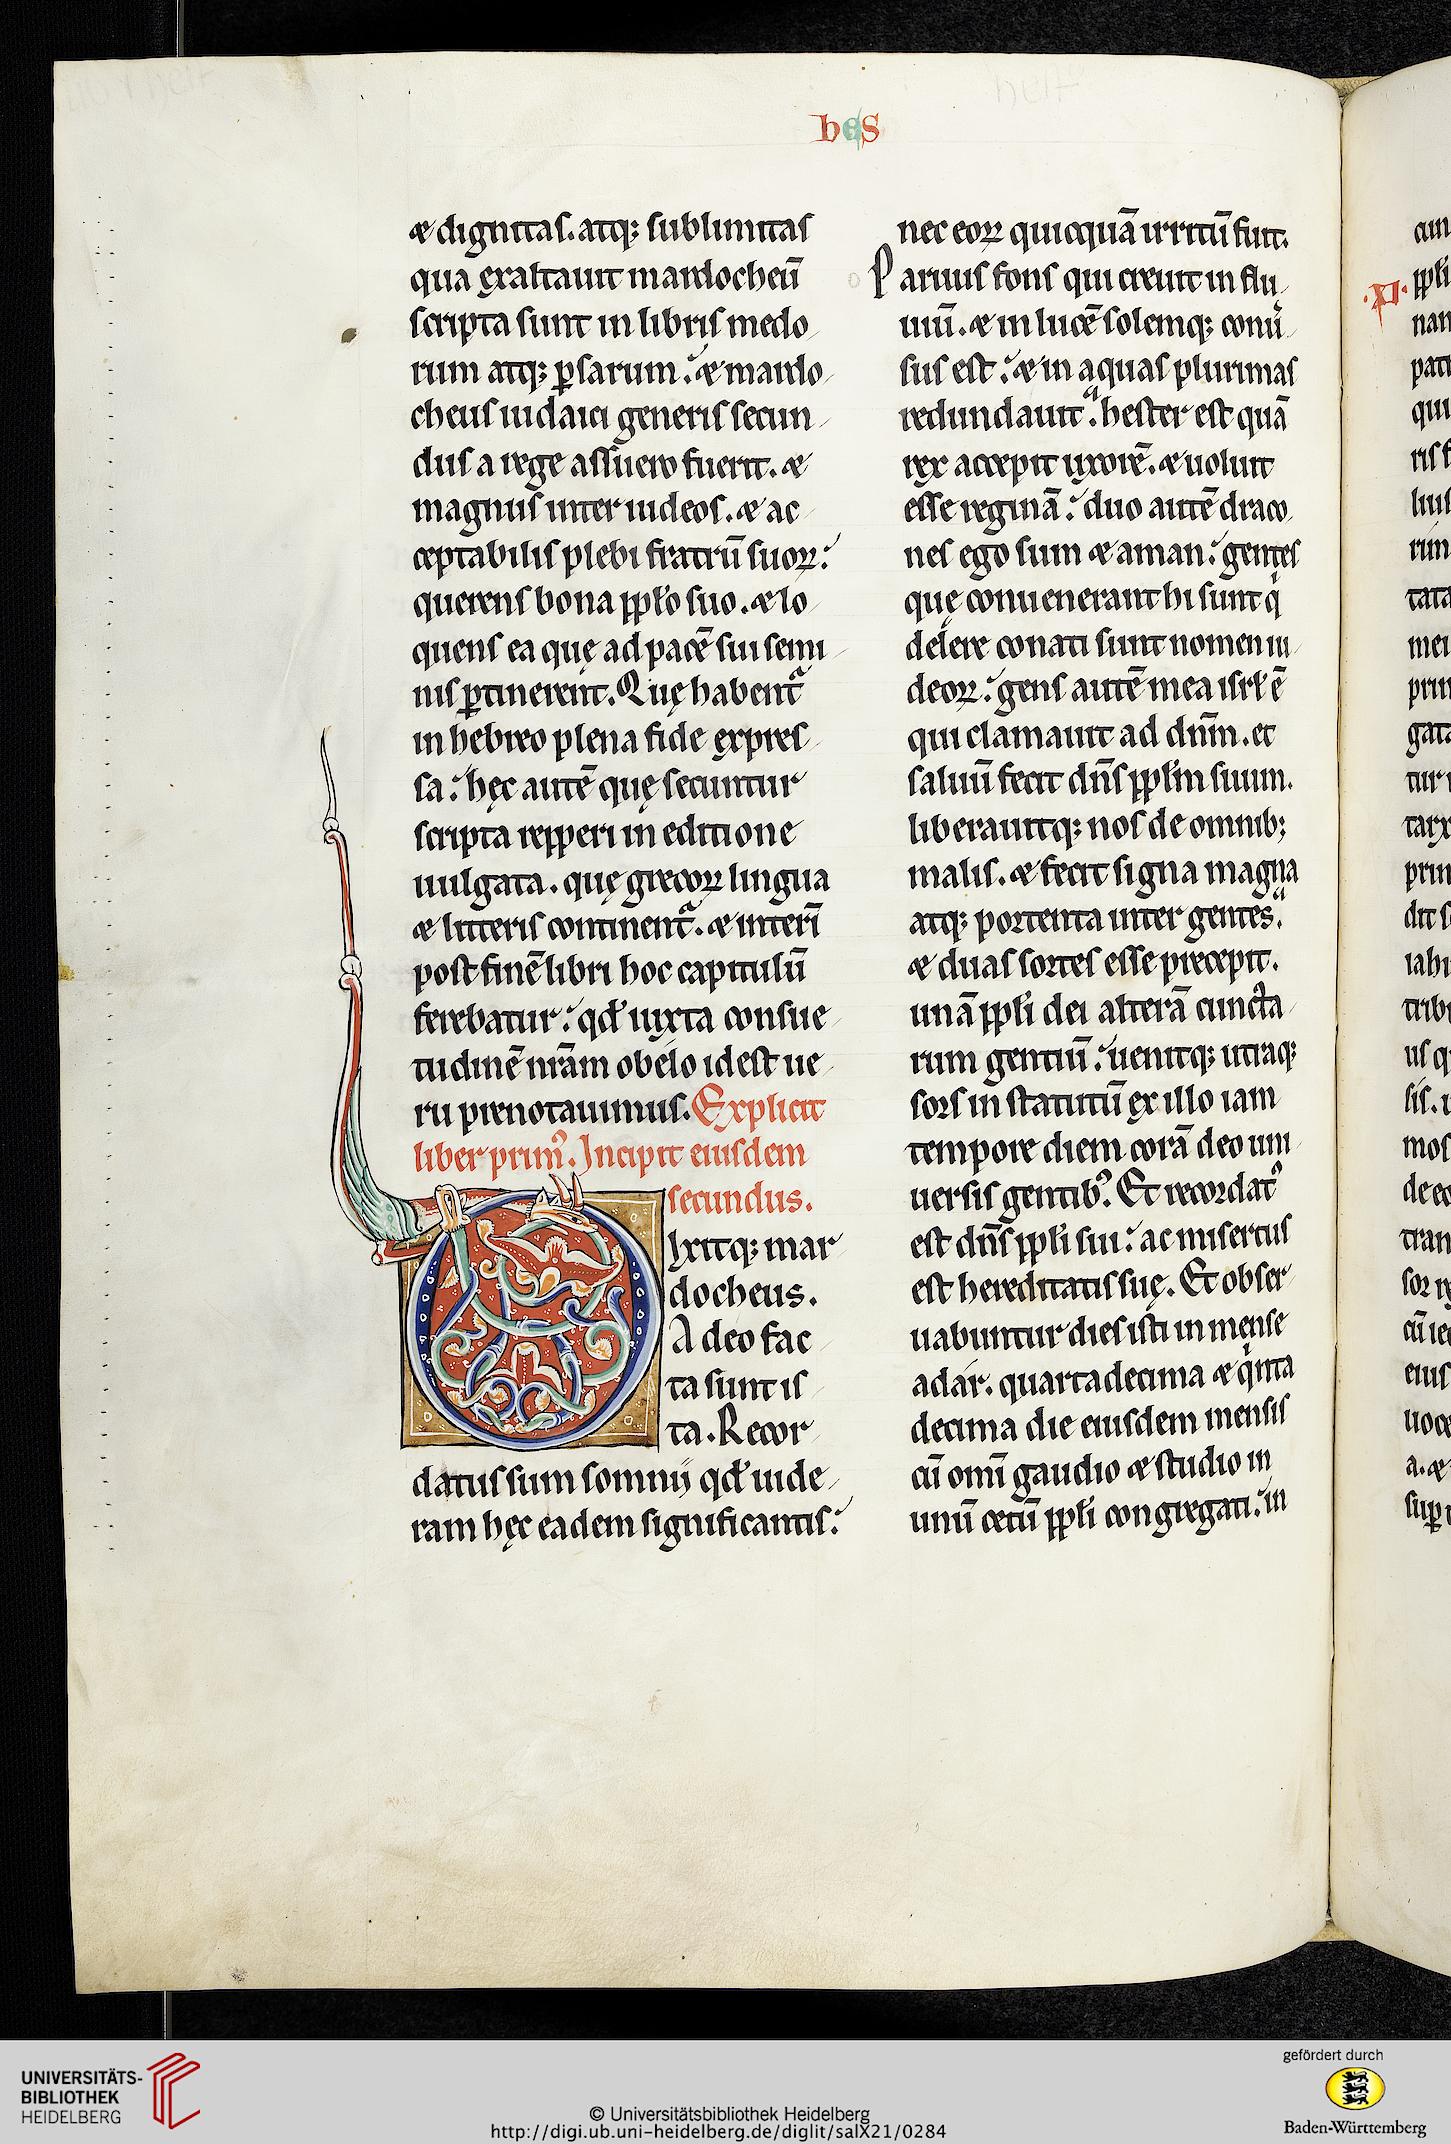 hes
& dignitas. atq; sublimitas
qua exaltauit mardocheū
scripta sunt in libris medo
rum atq; ꝑsarum. & mardo
cheus iudaici generis secun
dus a rege assuero fuerit. &
magnus inter iudeos. & ac
ceptabilis plebi fratrū suoꝝ.
querens bona ppło suo. & lo
quens ea quę ad pacē sui semi
nis ꝑtinerent. Quę habent᷑
in hebreo plena fide expres
sa. hęc autē quę secuntur
scripta repperi in editione
uulgata. quę grecoꝝ lingua
& litteris continent᷑. & interī
post finē libri hoc capitulū
ferebatur. qđ iuxta consue
tudinē nr̄am obelo id est ue
ru prenotauimus. Explicit
liber primꝰ. Incipit eiusdem
secundus.
Ixitq; mar
docheus.
A deo fac
ta sunt is
ta. Recor
datus sum somnij qđ uide
ram hęc eadem significantis.
nec eoꝝ quicquā irritū fuit.
Paruus fons qui creuit in flu
uiū. & in lucē solemq; conū
sus est. & in aquas plurimas
redundauit. hester est quā
rex accepit uxorē. & uoluit
esse reginā. duo autē draco
nes ego sum & aman. gentes
quę conuenerant hi sunt q̇
delere conati sunt nomen iu
deoꝝ. gens autē mea isrł ē
qui clamauit ad dn̄m. et
saluū fecit dn̄s ppłm suum.
liberauitq; nos de omnib;
malis. & fecit signa magna
atq; portenta inter gentes.
& duas sortes esse precepit.
unā ppłi dei alterā cuncta
rum gentiū. uenitq; utraq;
sors in statutū ex illo iam
tempore diem corā deo uni
uersis gentibꝰ. Et recordatꝰ
est dn̄s ppłi sui. ac misertus
est hereditatis suę. Et obser
uabuntur dies isti in mense
adar. quartadecima & q̇nta
decima die eiusdem mensis
cū omī gaudio & studio in
unū cetū ppłi congregati. in
UNIVERSITÄTS-
BIBLIOTHEK
HEIDELBERG
© Universitätsbibliothek Heidelberg
http://digi.ub.uni-heidelberg.de/diglit/salX21/0284
gefördert durch
Baden-Württemberg